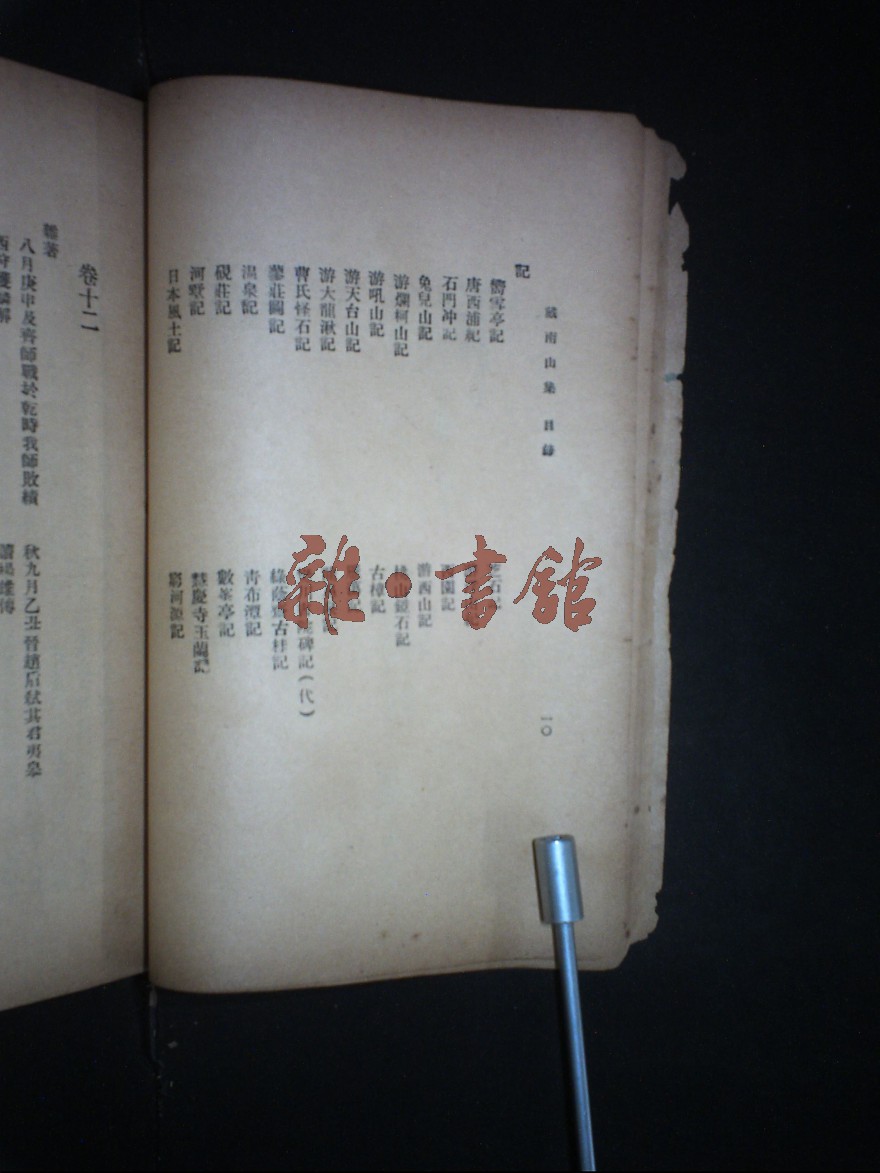 戴南山集 目錄
一〇
記
響雪亭記
唐西浦記
石門冲記
兔兒山記
游爛柯山記
游吼山記
游天台山記
游大龍湫記
曹氏怪石記
蓼莊圖記
温泉記
硯莊記
河墅記
日本風土記
游西山記
古樟記
綠蔭齋古桂記
青布潭記
數峯亭記
慧慶寺玉蘭記
窮河源記
卷十二
雜著
八月庚申及齊師戰於乾時我師敗績
秋九月乙丑晉趙盾弑其君夷皋
雜·書館